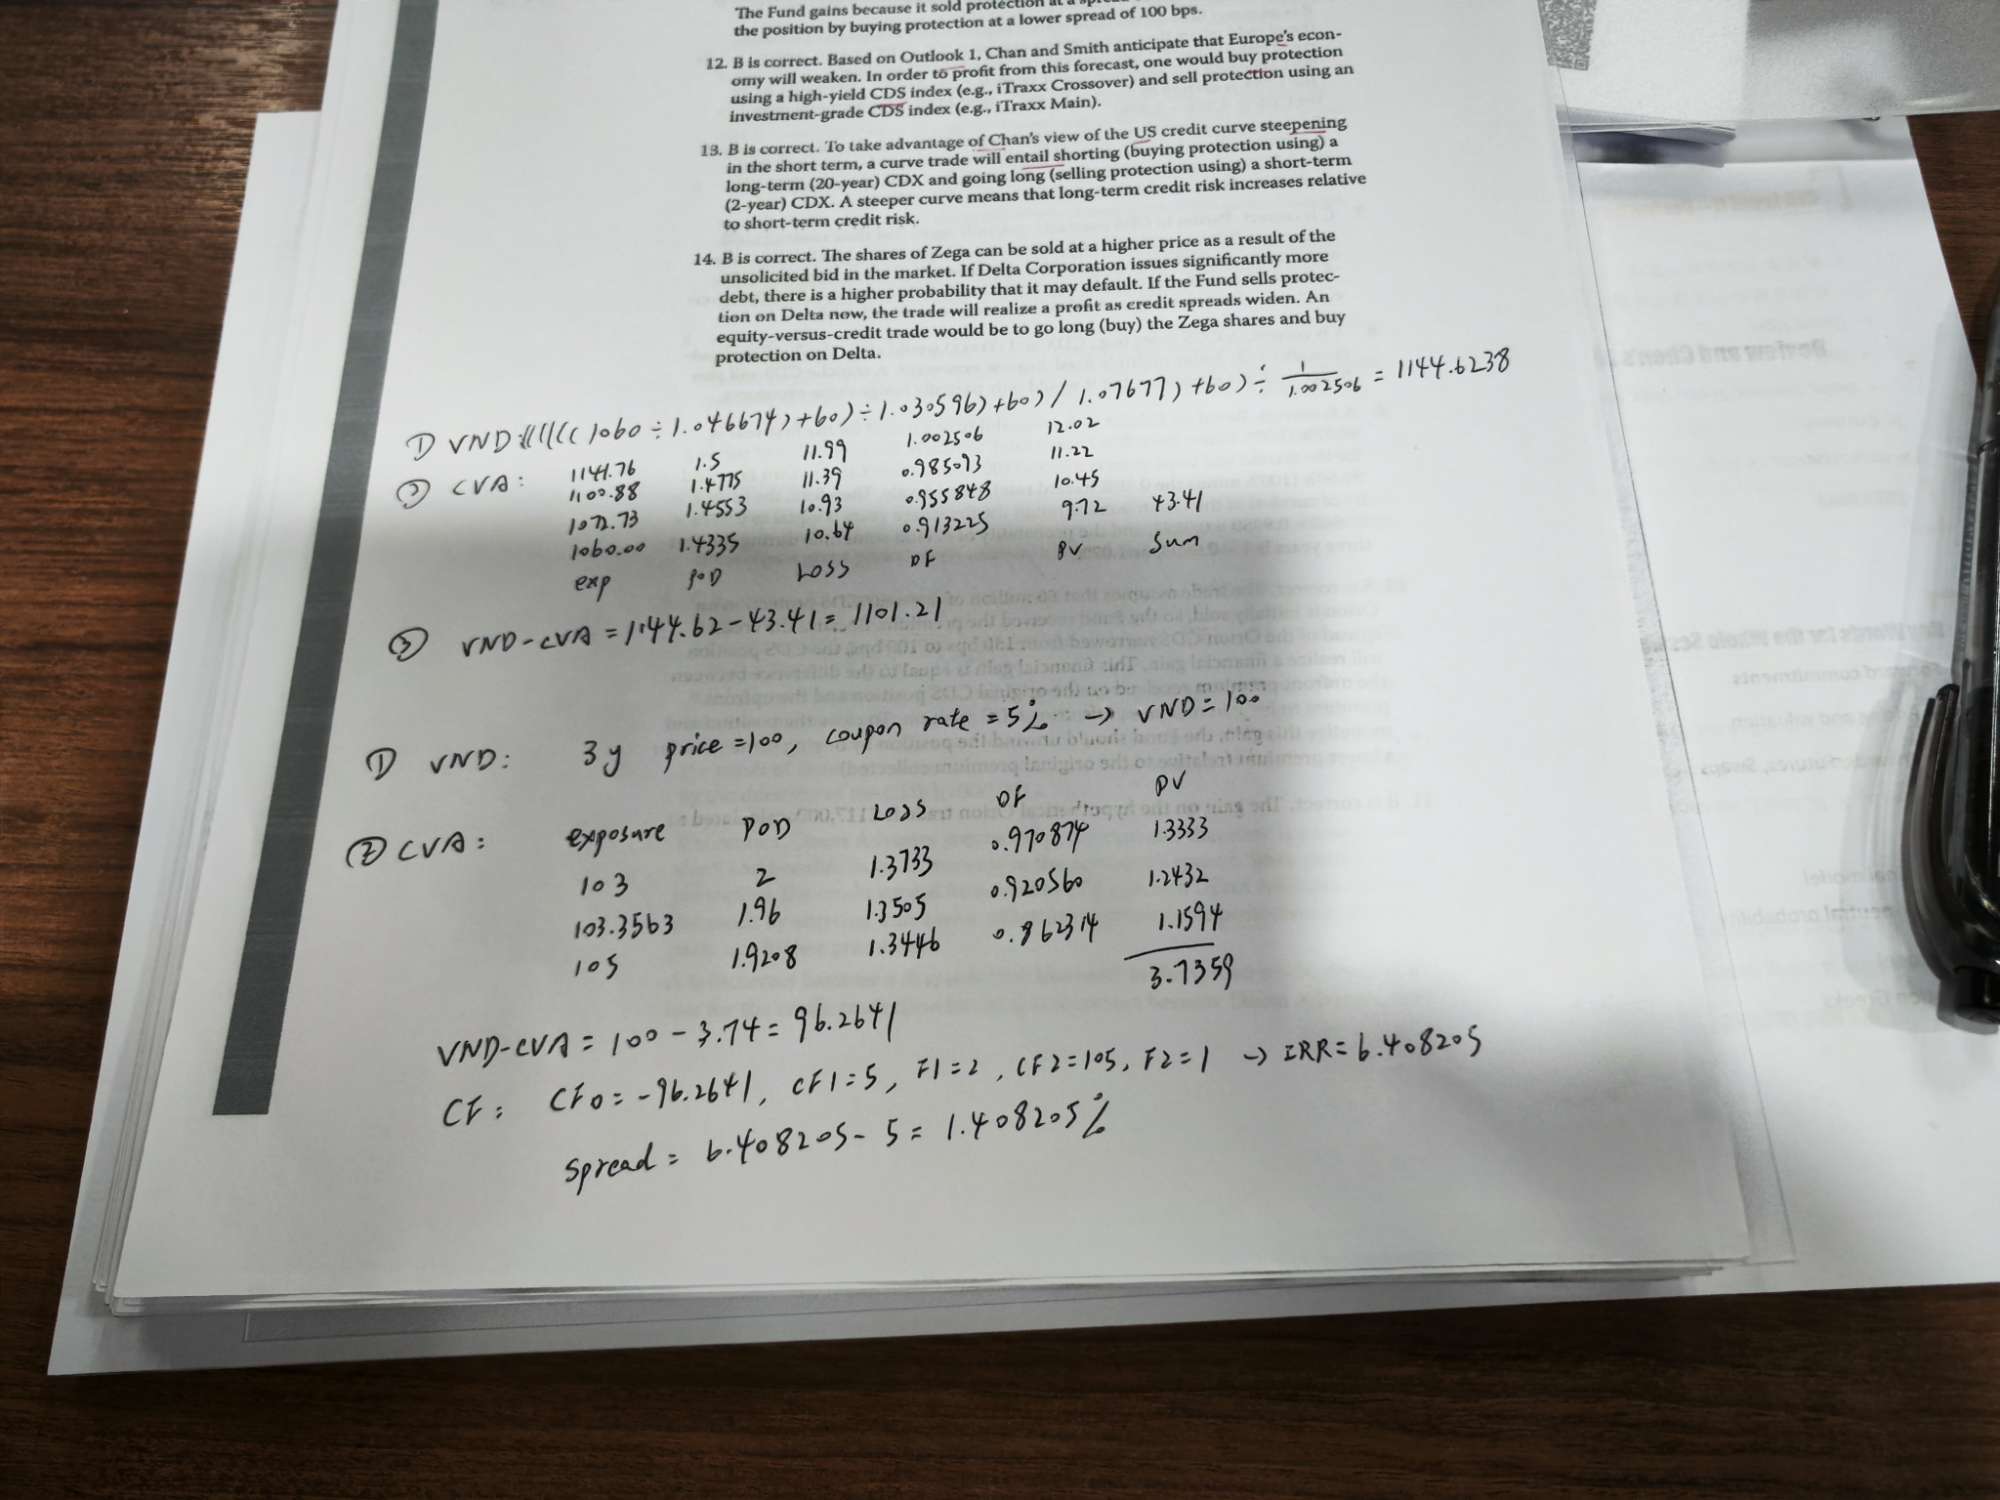 The Fund gains because it sold protection at a
the position by buying protection at a lower spread of 100 bps.
12. B is correct. Based on Outlook 1, Chan and Smith anticipate that Europe's econ-
omy will weaken. In order to profit from this forecast, one would buy protection
using a high-yield CDS index (e.g., iTraxx Crossover) and sell protection using an
investment-grade CDS index (e.g., iTraxx Main).
13. B is correct. To take advantage of Chan's view of the US credit curve steepening
in the short term, a curve trade will entail shorting (buying protection using) a
long-term (20-year) CDX and going long (selling protection using) a short-term
(2-year) CDX. A steeper curve means that long-term credit risk increases relative
to short-term credit risk.
14. B is correct. The shares of Zega can be sold at a higher price as a result of the
unsolicited bid in the market. If Delta Corporation issues significantly more
debt, there is a higher probability that it may default. If the Fund sells protec-
tion on Delta now, the trade will realize a profit as credit spreads widen. An
equity-versus-credit trade would be to go long (buy) the Zega shares and buy
protection on Delta.
① VND: (((((1060 ÷ 1.046674) + 60) ÷ 1.030596) + 60) / 1.07677) + 60) ÷ 1/1.002506 = 1144.6238
② CVA: 1144.76 1.5 11.99 1.002506 12.02
1100.88 1.4775 11.39 0.985093 11.22
1072.73 1.4553 10.93 0.955848 10.45
1060.00 1.4335 10.64 0.913225 9.72 43.41
exp POD LOSS DF PV Sum
③ VND-CVA = 1144.62 - 43.41 = 1101.21
① VND: 3y price = 100, coupon rate = 5% → VND = 100
② CVA: exposure POD Loss DF PV
103 2 1.3733 0.970874 1.3333
103.3563 1.96 1.3505 0.920560 1.2432
105 1.9208 1.3446 0.862314 1.1594
3.7359
VND-CVA = 100 - 3.74 = 96.2641
CF: CF0 = -96.2641, CF1 = 5, F1 = 2, CF2 = 105, F2 = 1 → IRR = 6.408205
Spread = 6.408205 - 5 = 1.408205%